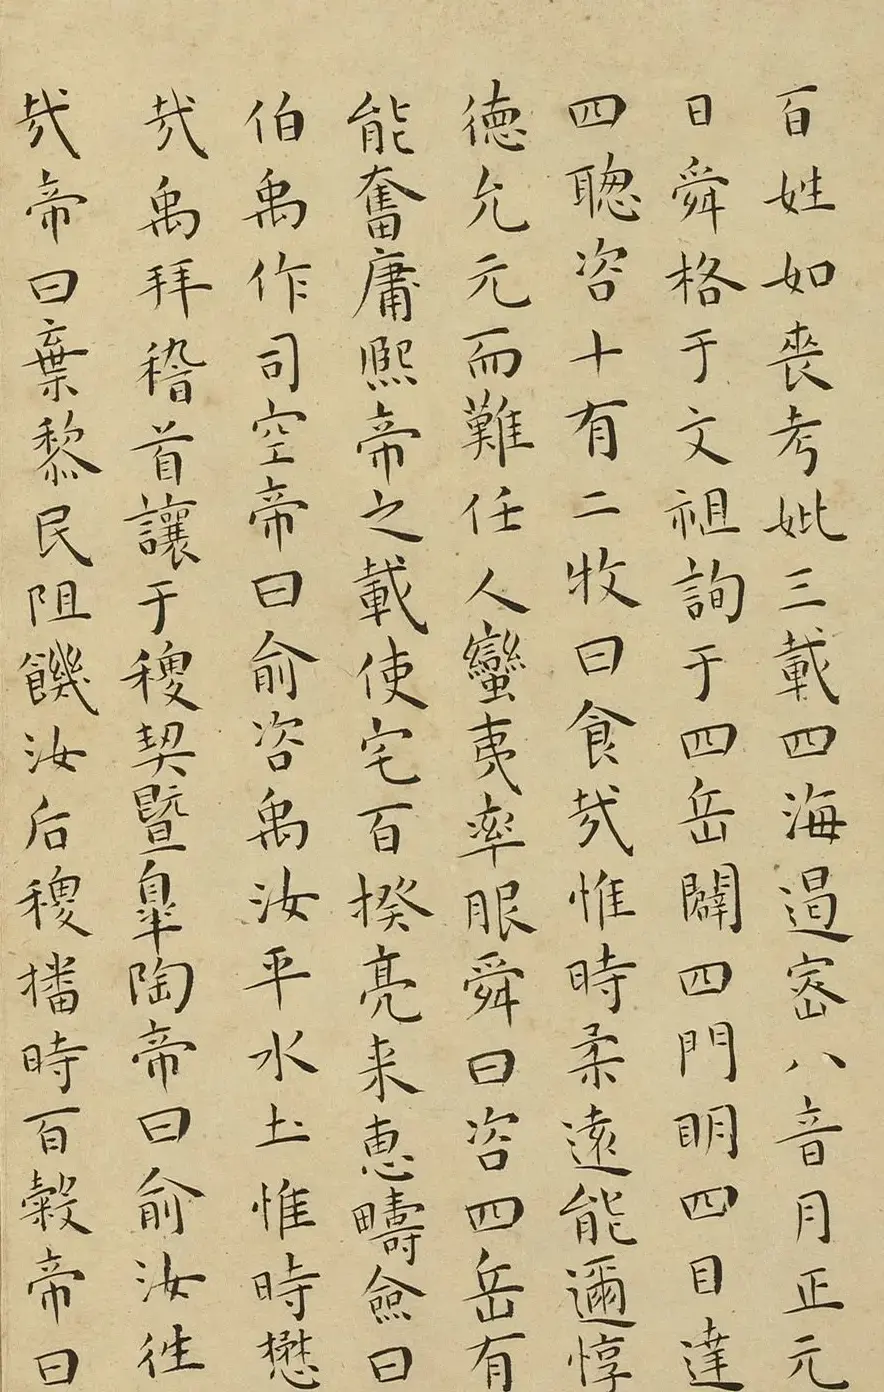 百姓如喪考妣三載四海遏密八音月正元
日舜格于文祖詢于四岳闢四門明四目達
四聦咨十有二牧曰食㢤惟時柔遠能邇惇
徳允元而難任人蠻夷率服舜曰咨四岳有
能奮庸熈帝之載使宅百揆亮来恵疇僉曰
伯禹作司空帝曰俞咨禹汝平水土惟時懋
㢤禹拜稽首讓于稷契暨皐陶帝曰俞汝徃
㢤帝曰棄黎民阻饑汝后稷播時百穀帝曰